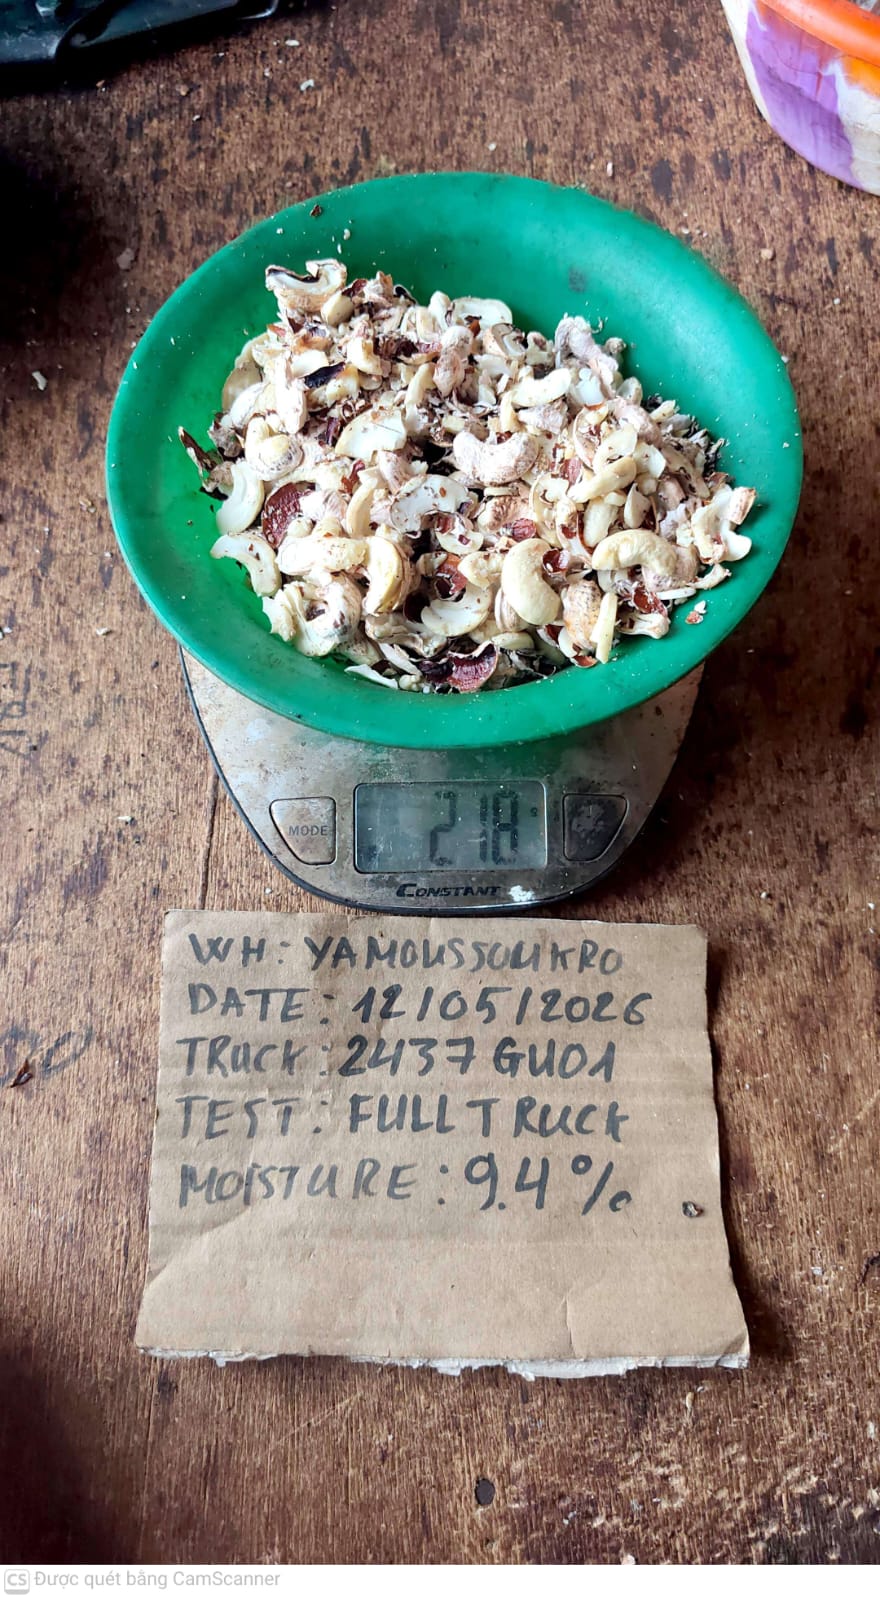 MODE
218
CONSTANT
WH: YAMOUSSOUKRO
DATE: 12/05/2026
TRUCK: 2437 GU01
TEST: FULL TRUCK
MOISTURE: 9.4%
CS Được quét bằng CamScanner